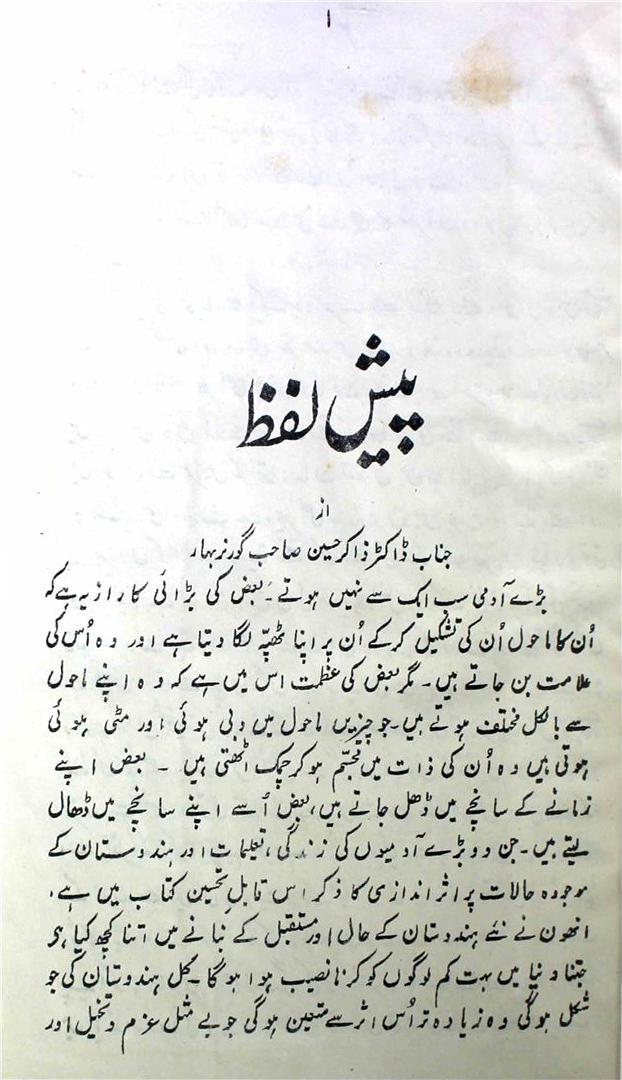 ۱
پیش لفظ
از
جناب ڈاکٹر ذاکر حسین صاحب گورنر بہار
بڑے آدمی سب ایک سے نہیں ہوتے۔ بعض کی بڑائی کا راز یہ ہے کہ
اُن کا ماحول اُن کی تشکیل کر کے اُن پر اپنا ٹھپّہ لگا دیتا ہے اور وہ اُس کی
علامت بن جاتے ہیں۔ مگر بعض کی عظمت اس میں ہے کہ وہ اپنے ماحول
سے بالکل مختلف ہوتے ہیں۔ جو چیزیں ماحول میں دبی ہوئی اور مٹی ہوئی
ہوتی ہیں وہ اُن کی ذات میں مجسّم ہو کر چمک اُٹھتی ہیں ۔ بعض اپنے
زمانے کے سانچے میں ڈھل جاتے ہیں، بعض اُسے اپنے سانچے میں ڈھال
لیتے ہیں۔ جن دو بڑے آدمیوں کی زندگی، تعلیمات اور ہندوستان کے
موجودہ حالات پر اثر اندازی کا ذکر اس قابلِ تحسین کتاب میں ہے،
انھوں نے نئے ہندوستان کے حال اور مستقبل کے بنانے میں اتنا کچھ کیا ہی
جتنا دنیا میں بہت کم لوگوں کو کرنا نصیب ہوا ہوگا۔ کل ہندوستان کی جو
شکل ہوگی وہ زیادہ تر اُس اثر سے متعین ہوگی جو بے مثل عزم و تخیل اور